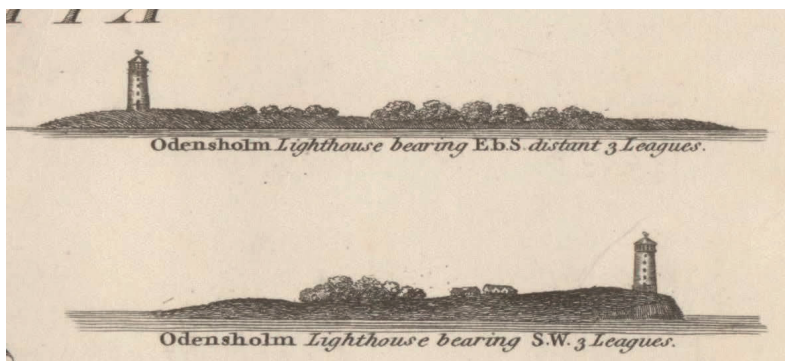 Odensholm Lighthouse bearing E.b.S. distant 3 Leagues.
Odensholm Lighthouse bearing S.W. 3 Leagues.